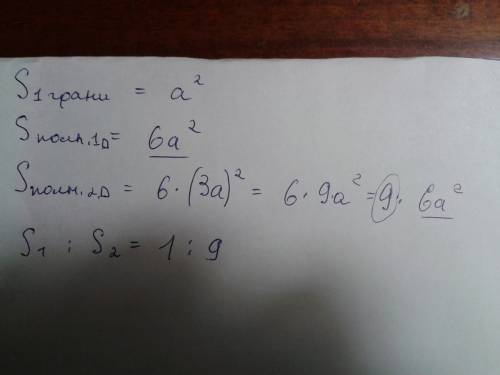 S₁ грани = a²
Sполн.1D = 6a²
Sполн.2D = 6·(3a)² = 6·9·a² = 9·6a²
S₁ : S₂ = 1 : 9